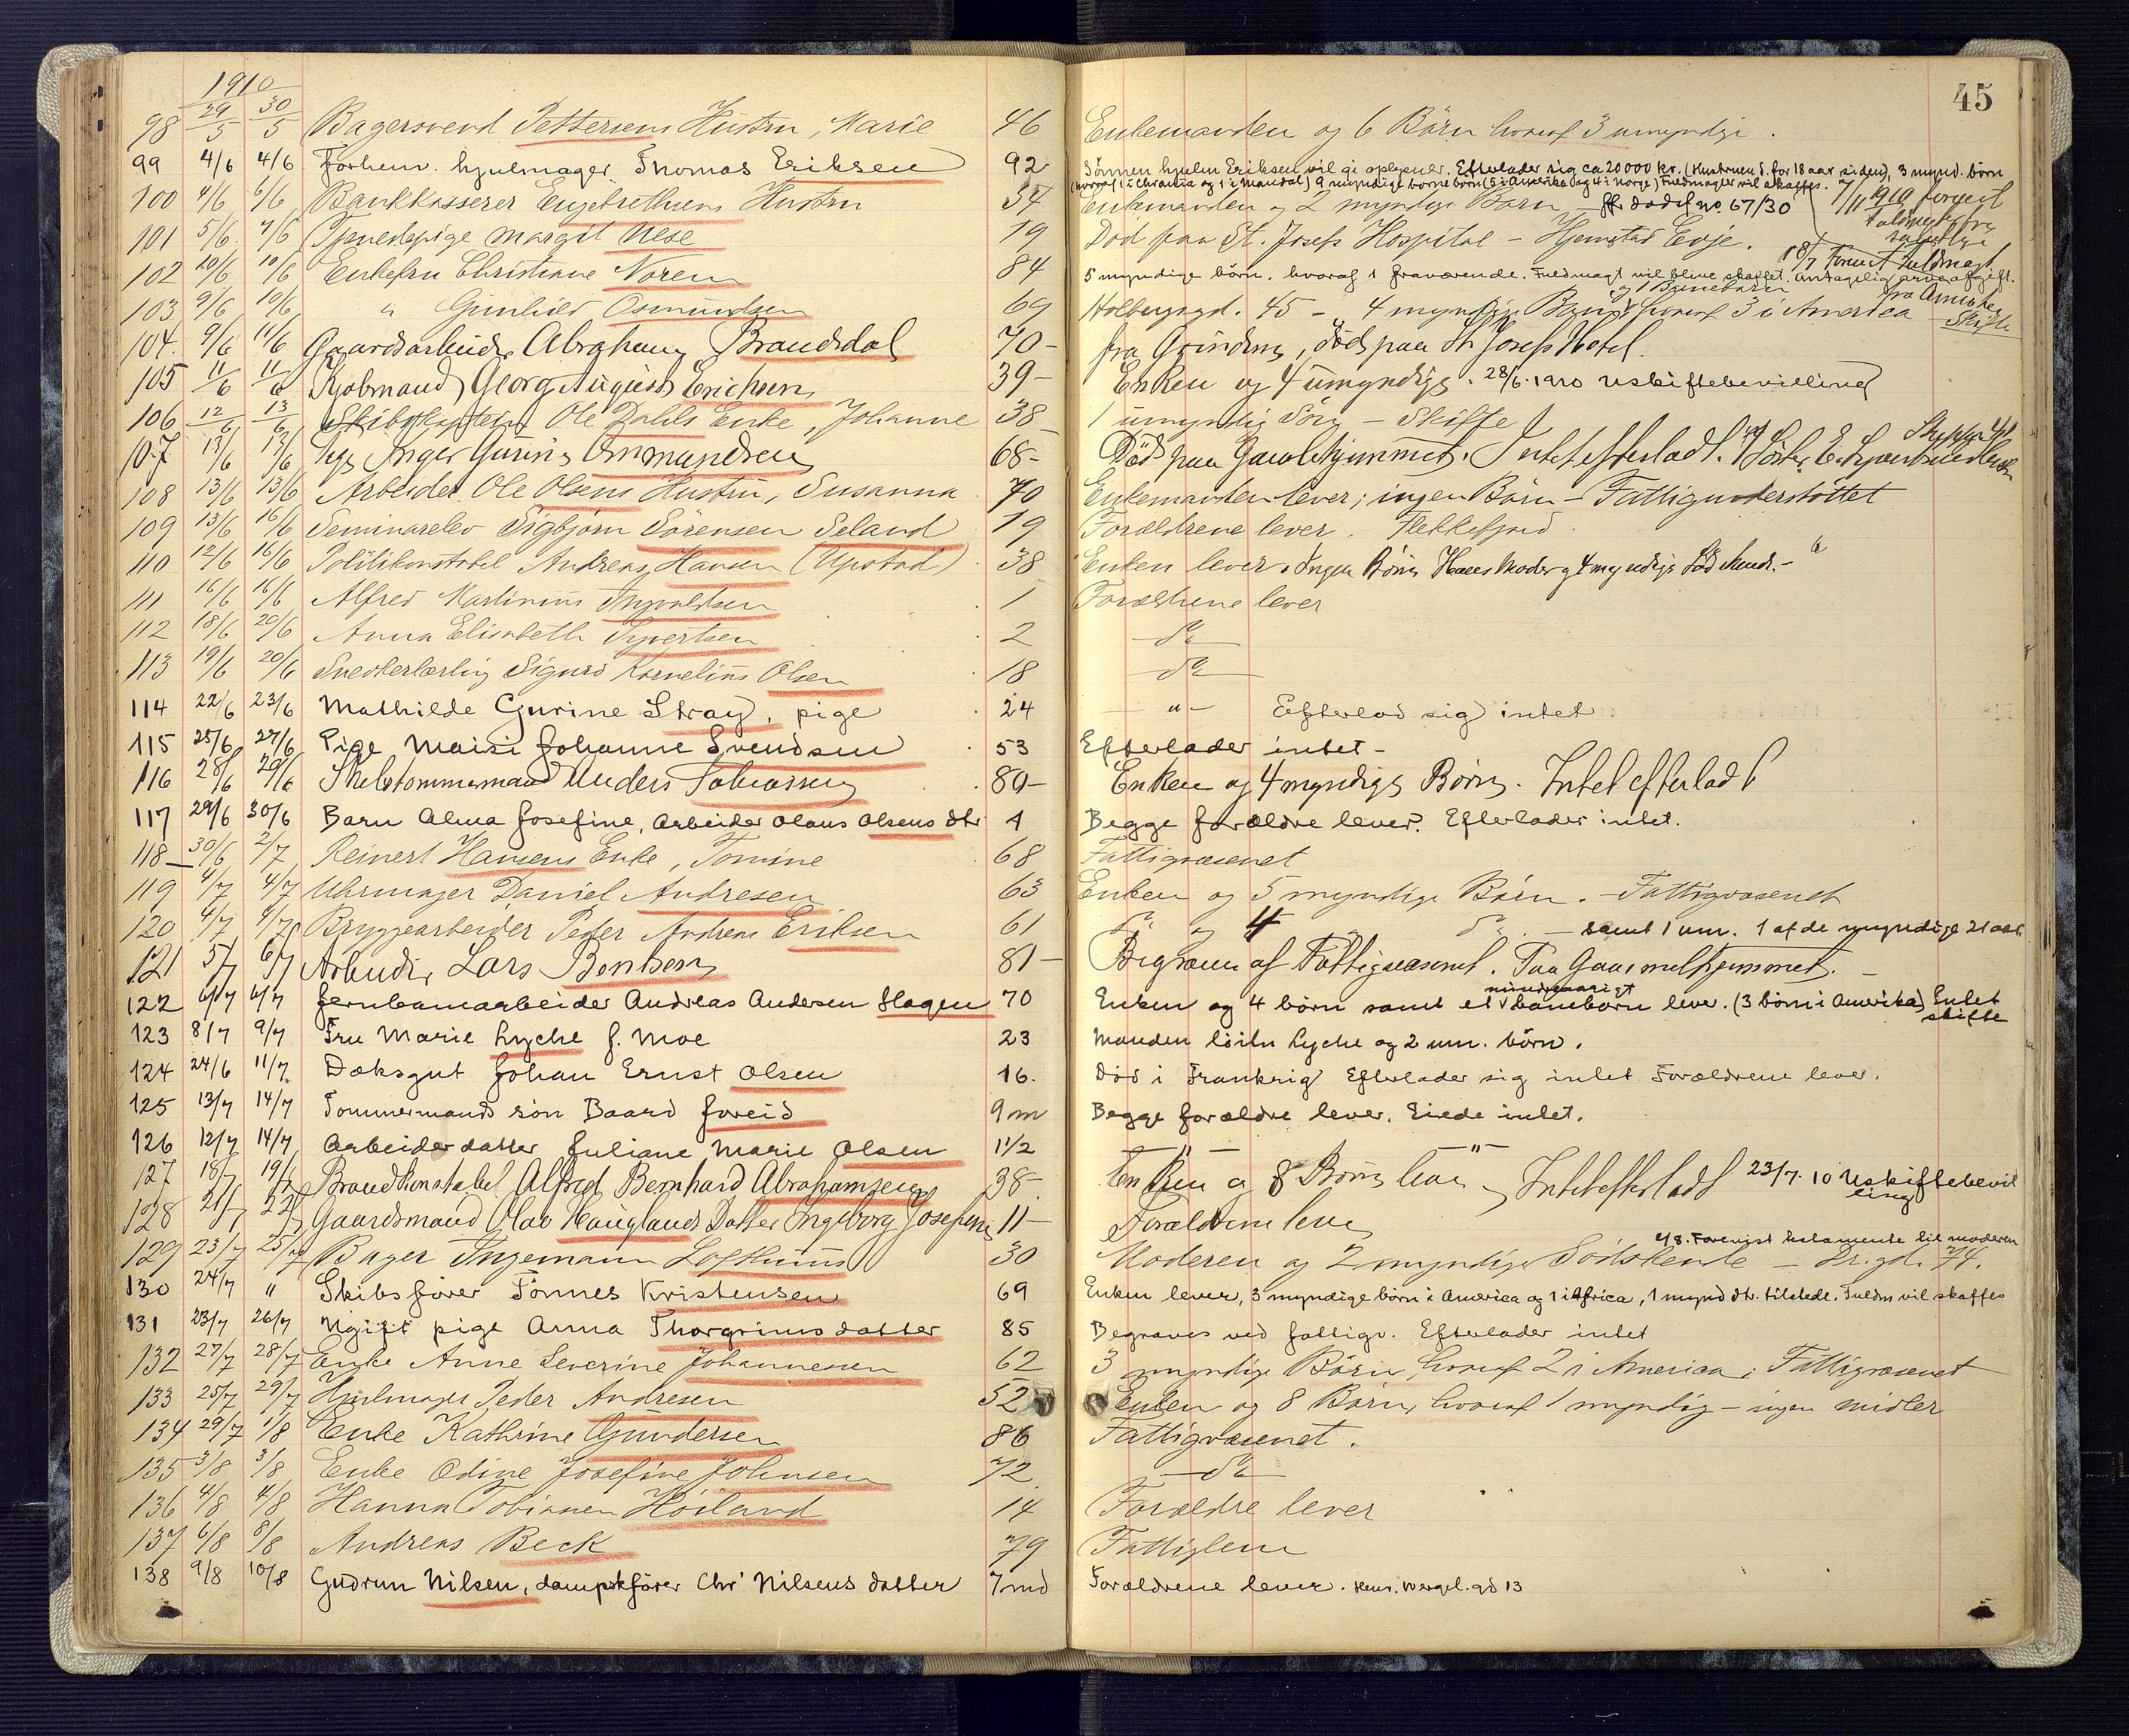 45
1910
98 29/5 30/5 Bagersvend Pettersens Hustru, Marie 46 Enkemanden og 6 Børn hvoraf 3 umyndige.
99 4/6 4/6 Forhenv. hjulmager Thomas Eriksen 92 Sønnen hjulm Eriksen vil gi oplysnr. Efterlader sig ca 20000 kr. (Hustruen d. for 18 aar siden), 3 mynd. børn
(hvoraf 1 i Chrania og 1 i Mandal) 9 myndige børnebørn (5 i Amerika og 4 i Norge) Fuldmagter vil skaffes. 7/11 1910 forevist
100 4/6 6/6 Bankkasserer Engebrethsens Hustru 54 Enkemanden og 2 myndige Børn – jfr. dødsf no. 67/30
101 5/6 7/6 Tjenestepige Margit Uese 19 Død paa St. Josefs Hospital – Hjemsted Evje.
18/7 forevist fuldmagt
102 10/6 10/6 Enkefru Christiane Noren 84 5 myndige børn, hvoraf 1 fraværende. Fuldmagt vil blive skaffet. Antagelig arveafgift.
og 1 Barnebarn fra Amerika
103 9/6 10/6 " Gunhild Osmundsen 69 Holbergsgd. 45 – 4 myndige Børn hvoraf 3 i America – Skifte
104. 9/6 11/6 Gaardsarbeider Abraham Brandsdal 70– fra Grindem, død paa St Josefs Hotel.
105 11/6 11/6 Kjøbmand Georg August Erichsen 39– Enken og 4 umyndige. 28/6. 1910 Uskiftebevilling
106 12/6 13/6 Skibskaptein Ole Dahls Enke, Johanne 38– 1 umyndig Søn – Skifte
107 13/6 13/6 Pige Inger Gurine Ommundsen 68– Død paa Gamlehjemmet. Intet efterladt.
108 13/6 13/6 Arbeider Ole Olsens Hustru, Susanna 70 Enkemanden lever; ingen Børn – Fattigunderstøttet
109 13/6 16/6 Seminarelev Sigbjørn Sørensen Seland 19 Forældrene lever. Flekkefjord.
110 12/6 16/6 Politikonstabel Andreas Hansen (Upstad) 38 Enken lever. Ingen Børn Hans Moder og 4 myndige Sødskende. –
111 16/6 16/6 Alfred Martinius Ingvaldsen 1 Forældrene lever
112 18/6 20/6 Anna Elisabeth Syvertsen 2 – do –
113 19/6 20/6 Snedkerlærling Sigurd Kornelius Olsen 18 – do –
114 22/6 23/6 Mathilde Gurine Stray, pige 24 – " – Efterlod sig intet.
115 25/6 27/6 Pige Maisi Johanne Svendsen 53 Efterlader intet –
116 28/6 29/6 Skibstømmermand Anders Tobiassen 80– Enken og 4 myndige Børn. Intet efterladt
117 29/6 30/6 Barn Alma Josefine, Arbeider Olaus Olsens dtr 4 Begge forældre lever. Efterlader intet.
118 30/6 2/7 Reinert Hansens Enke, Tomine 68 Fattigvæsenet
119 4/7 4/7 Uhrmager Daniel Andresen 63 Enken og 5 myndige Børn. – Fattigvæsenet
120 4/7 4/7 Bryggearbeider Peder Andreas Eriksen 61 do og 4 do. – samt 1 um. 1 af de myndige 21 aar
121 5/7 6/7 Arbeider Lars Bentsen 81– Begraves af Fattigvæsenet. Paa Gammelhjemmet. –
mindreaarigt
122 6/7 6/7 Jernbanearbeider Andreas Andersen Hagen 70 Enken og 4 børn samt et barnebarn lever. (3 børn i Amerika) Intet skifte
123 8/7 9/7 Fru Marie Lyche f. Moe 23 Manden løitn Lyche og 2 um. børn.
124 24/6 11/7 Dæksgut Johan Ernst Olsen 16. Død i Frankrig Efterlader sig intet Forældrene lever.
125 13/7 14/7 Tømmermands søn Baard Joreid 9m Begge forældre lever. Eiede intet.
126 12/7 14/7 Arbeiderdatter Juliane Marie Olsen 1 1/2 – " – – " –
127 18/7 19/7 Brandkonstabel Alfred Bernhard Abrahamsen 38– Enken og 8 Børn lever Intet efterladt 23/7. 10 Uskiftebevilling
128 21/7 22/7 Gaardsmand Olav Hauglands Datter Ingeborg Josefine 11– Forældrene lever
2/8. Forevist testamente til moderen
129 23/7 25/7 Bager Ingemann Lofthuus 30 Moderen og 2 myndige Sødskende – Dr.gd. 74.
130 24/7 " Skibsfører Tønnes Kristensen 69 Enken lever, 3 myndige børn i America og 1 i Africa, 1 mynd dtr. tilstede. Fuldm vil skaffes
131 23/7 26/7 Ugift pige Anna Thorgrimsdatter 85 Begraves ved fattigv. Efterlader intet
132 27/7 28/7 Enke Anne Severine Johannessen 62 3 myndige Børn, hvoraf 2 i America; Fattigvæsenet
133 25/7 29/7 Hjulmager Peder Andresen 52 Enken og 8 Børn, hvoraf 1 myndig – ingen midler
134 29/7 1/8 Enke Kathrine Gundersen 86 Fattigvæsenet.
135 3/8 3/8 Enke Odine Josefine Johnsen 72 – do –
136 4/8 4/8 Hanna Tobiassen Høiland 14 Forældre lever
137 6/8 8/8 Andreas Beck 79 Fattiglem
138 9/8 10/8 Gudrun Nilsen, dampskfører Chr. Nilsens datter 7 md Forældrene lever. Henr. Wergel. gd 13